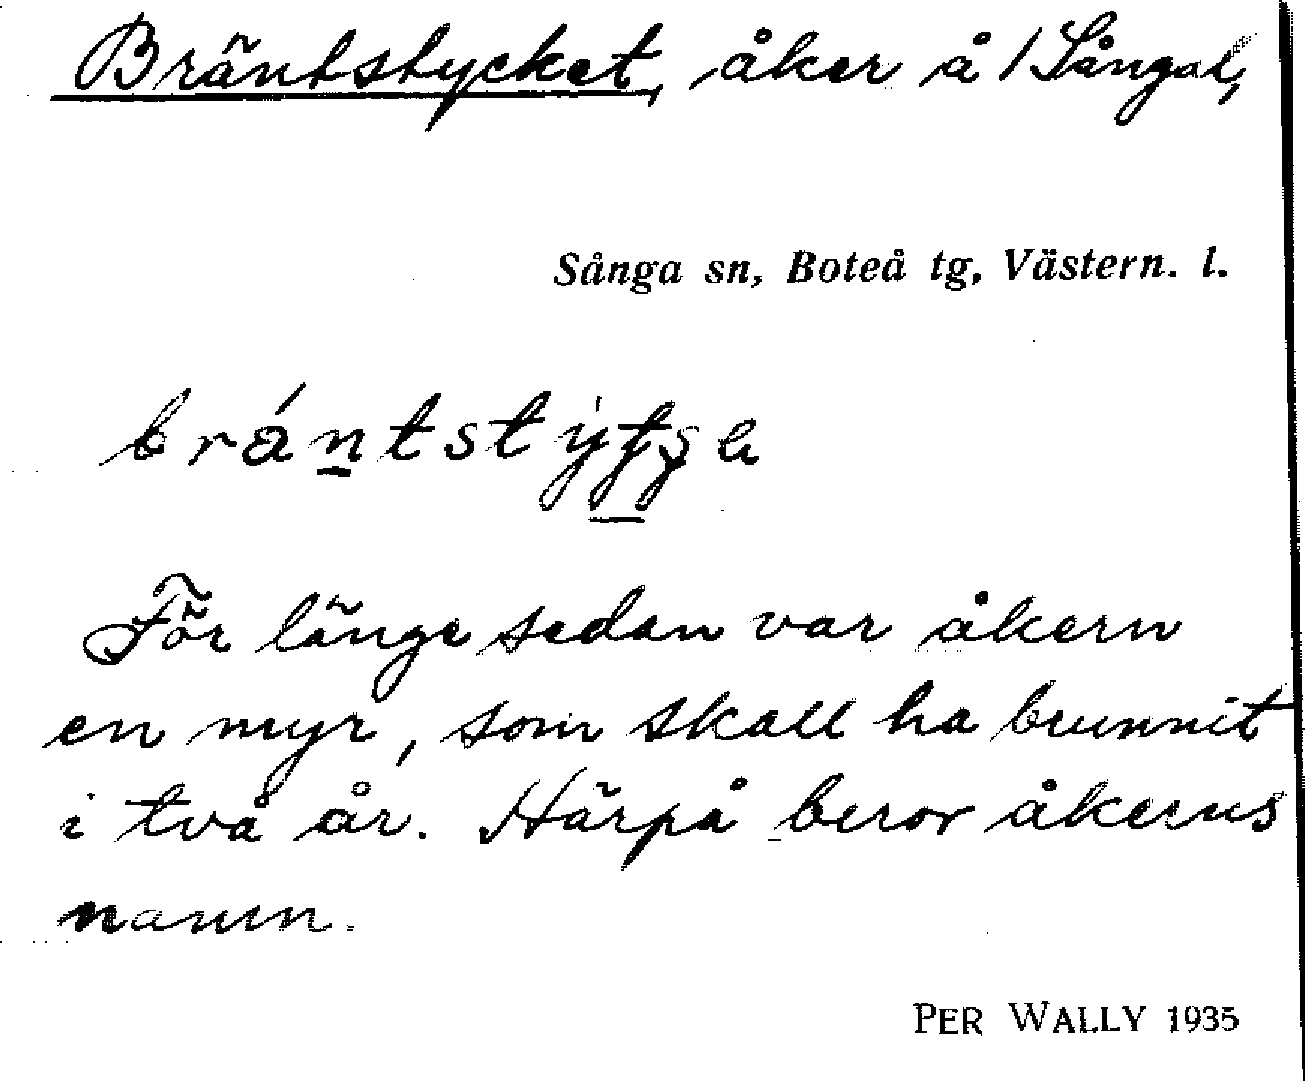 Bräntstycket, åker å 1 Sånga 1,
Sånga sn, Boteå tg, Västern. l.
För länge sedan var åkern
en myr, som skall ha brunnit
i två år. Härpå beror åkerns
namn.
PER WALLY 1935